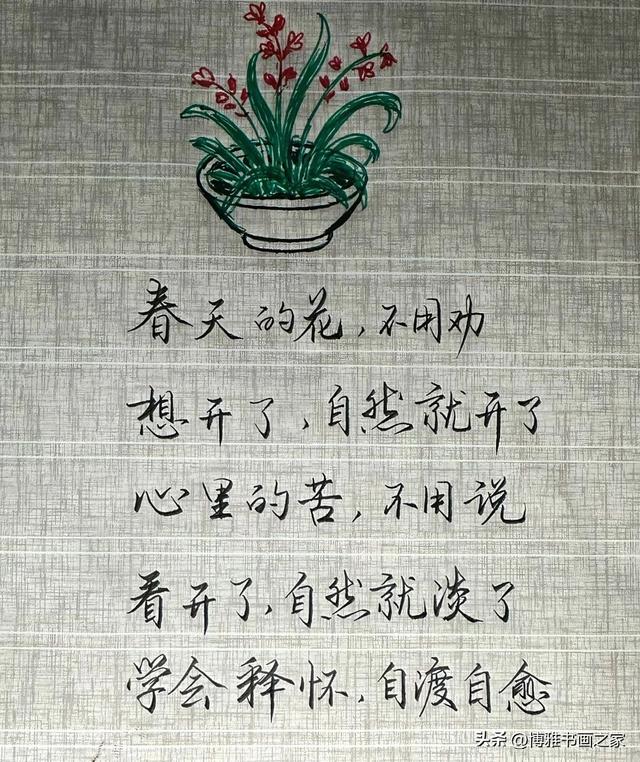 春天的花，不用劝
想开了，自然就开了
心里的苦，不用说
看开了，自然就淡了
学会释怀，自渡自愈
头条 @博雅书画之家